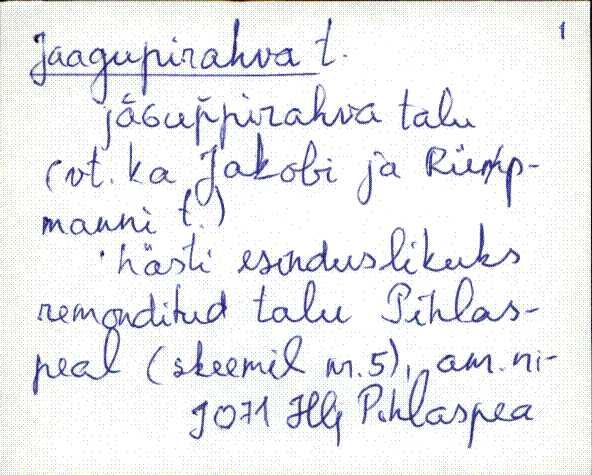 1
Jaagupirahva t.
jāGup̆pirahva talu
(vt. ka Jakobi ja Rüm̀p-
manni t.)
hästi esinduslikuks
remonditud talu Pihlas-
peal (skeemil nr. 5), am. ni-
J071 HLj Pihlaspea